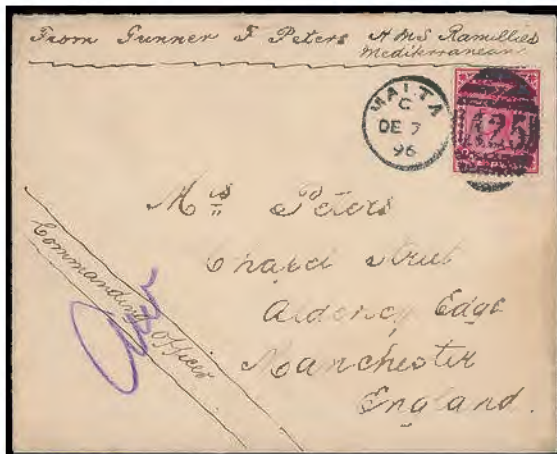 From Gunner F Peters HMS Ramillies
Mediterranean
MALTA
C
DE 7
96
A25
Mrs Peters
Chapel Street
Alderley Edge
Manchester
England.
Commanding Officer